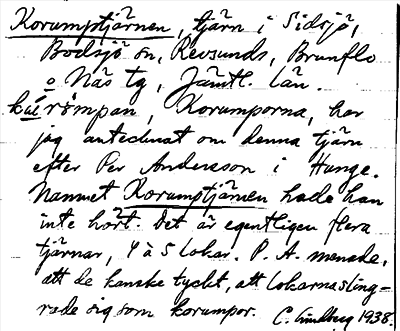 Korumptjärnen, tjärn i Sidsjö,
Bodsjö sn, Revsunds, Brunflo
o Näs tg, Jämtl. län.
römpan, Korumporna, har
jag antecknat om denna tjärn
efter Per Andersson i Hunge.
Namnet Korumptjärnen hade han
inte hört. Det är egentligen flera
tjärnar, 4 à 5 lokar. P. A. menade,
att de kanske tyckt, att lokarna sling-
rade sig som korumpor. C. Lindberg 1938.